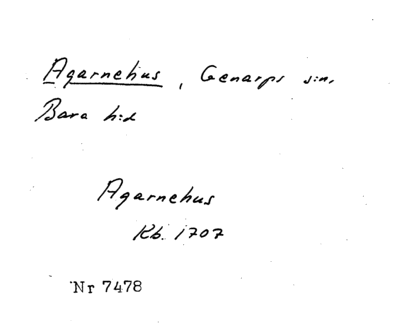 Agarnehus, Genarps sn,
Bara hd
Agarnehus
Kb. 1707
Nr 7478